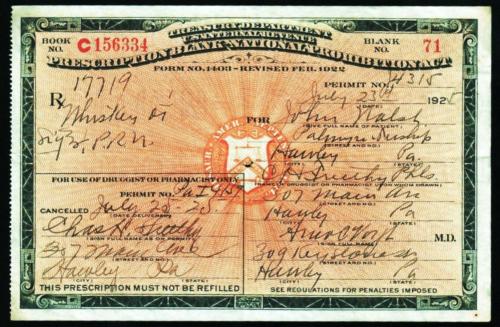 TREASURY DEPARTMENT
U.S. INTERNAL REVENUE
BOOK NO. C156334
BLANK NO. 71
PRESCRIPTION BLANK-NATIONAL PROHIBITION ACT
FORM NO. 1403-REVISED FEB. 1922
PERMIT NO. 4315
℞ 17719
July 23rd 1925
(DATE)
Whiskey
FOR John Walsh
(GIVE FULL NAME OF PATIENT)
P.R.N.
Palmyra
(STREET AND NO.)
Hawley Pa.
(CITY) (STATE)
FOR USE OF DRUGGIST OR PHARMACIST ONLY
PERMIT NO.
(GIVE DRUGGIST OR PHARMACIST UPON WHOM DRAWN)
307 Main Ave
(STREET AND NO.)
CANCELLED July 23-25
(DATE DELIVERED)
Hawley Pa
(CITY) (STATE)
Chas H
(SIGN FULL NAME AS ON PERMIT)
M.D.
(SIGN FULL NAME)
307 Main Ave
(STREET AND NO.)
309 Keystone
(STREET AND NO.)
Hawley Pa
(CITY) (STATE)
Hawley Pa
(CITY) (STATE)
THIS PRESCRIPTION MUST NOT BE REFILLED
SEE REGULATIONS FOR PENALTIES IMPOSED